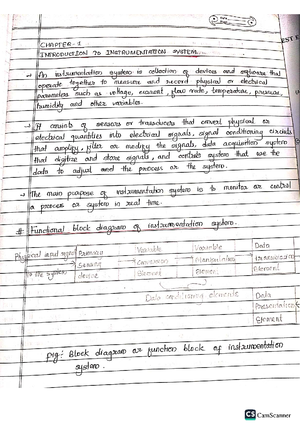 CHAPTER-1
INTRODUCTION TO INSTRUMENTATION SYSTEM
→ An instrumentation system is collection of devices and software that
operate together to measure and record physical or electrical
parameters such as voltage, current, flow rate, temperature, pressure,
humidity and other variables.
→ It consists of sensors or transducers that convert physical or
electrical quantities into electrical signals, signal conditioning circuits
that amplify, filter or modify the signals, data acquisition system
that digitize and store signals, and controls system that use the
data to adjust and the process or the system.
→ The main purpose of instrumentation system is to monitor or control
a process or system in real time.
# Functional block diagram of instrumentation system.
Physical and input
to the system
Primary
Sensing
device
Variable
Conversion
Element
Variable
Manipulation
Element
Data
transmission
Element
Data conditioning elements
Data
Presentation
Element
fig: Block diagram or function block of instrumentation
system.
CS CamScanner